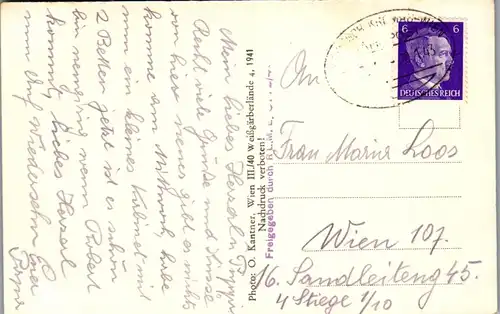 Mein liebes Herzerl u. Puppi
Recht viele Grüße und Küsse
von hier neues gibt es nichts
komme am Mittwoch habe
nur ein kleines Kabinet mit
2 Betten jetzt ist es schon
bin neugirig wenn Robert
kommt, liebes Herzerl
Auf Wiedersehn Euer
Photo: O. Kantner, Wien III./40 Weißgärberlände 4, 1941
Nachdruck verboten!
Freigegeben durch R.L.M.
6 6
DEUTSCHES REICH
An
Frau Maria Loos
Wien 107.
16. Sandleiteng 45.
4 Stiege 1/10